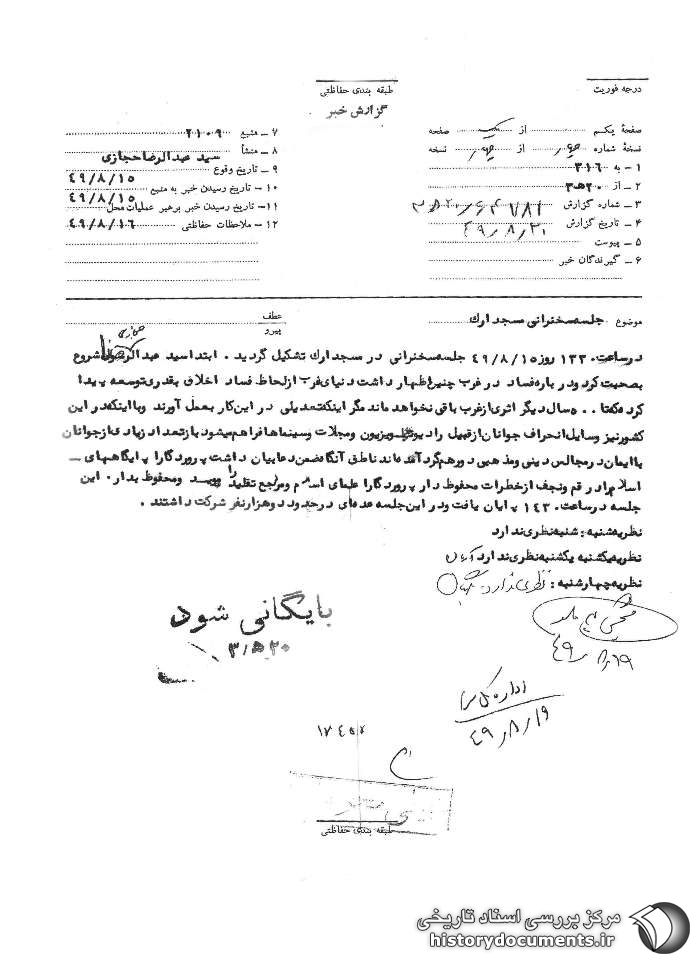 طبقه بندی حفاظتی
درجه فوریت
گزارش خبر
صفحهٔ یکم از یک صفحه
نسخهٔ شماره چهار از چهار نسخه
۱ – به ۳۱۶
۲ – از ۲۰ﻫ۳
۳ – شماره گزارش
۴ – تاریخ گزارش ۴۹٫۸٫۲۱
۵ – پیوست
۶ – گیرندگان خبر
۷ – منبع ۲۱۰۹
۸ – منشأ سید عبدالرضا حجازی
۹ – تاریخ وقوع ۴۹/۸/۱۵
۱۰ – تاریخ رسیدن خبر به منبع ۴۹/۸/۱۵
۱۱ – تاریخ رسیدن خبر برهبر عملیات محل ۴۹/۸/۱۶
۱۲ – ملاحظات حفاظتی
موضوع جلسه سخنرانی مسجد ارک
عطف
پیرو
در ساعت ۱۳۳۰ روز ۴۹/۸/۱۵ جلسه سخنرانی در مسجد ارک تشکیل گردید . ابتدا سید عبدالرضا حجازی شروع
بصحبت کرد و در باره فساد در غرب چنین اظهار داشت دنیای غرب از لحاظ فساد اخلاق بقدری توسعه پیدا
کرده که تا ۵۰ سال دیگر اثری از غرب باقی نخواهد ماند مگر اینکه تعدیلی در این کار بعمل آورند و با اینکه در این
کشور نیز وسایل انحراف جوانان از قبیل رادیو تلویزیون و مجلات و سینماها فراهم میشود باز تعداد زیادی از جوانان
با ایمان در مجالس دینی و مذهبی دور هم گرد آمده‌اند ناطق آنگاه ضمن دعا بیان داشت پروردگارا پایگاههای –
اسلام را در قم و نجف از خطرات محفوظ دار پروردگارا علمای اسلام و مراجع تقلید را موید و محفوظ بدار . این
جلسه در ساعت ۱۴۳۰ پایان یافت و در این جلسه عده‌ای در حدود دو هزار نفر شرکت داشتند .
نظریه شنبه : شنبه نظری ندارد
نظریه یکشنبه یکشنبه نظری ندارد
نظریه چهارشنبه : نظری ندارد
۴۹٫۸٫۱۹
بایگانی شود
۳/ﻫ۲۰
۴۹٫۸٫۱۹
طبقه بندی حفاظتی
مرکز بررسی اسناد تاریخی
historydocuments.ir